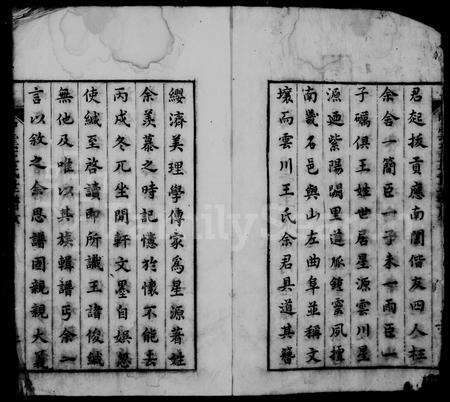 君起拔貢應南闈偕友四人枉
余舍一簡臣一子未一而臣一
子礪俱王姓世居星源雲川星
源迺紫陽闕里道脈鍾靈夙擅
南畿名邑與山左曲阜並稱文
壤而雲川王氏余君具道其簪
纓濟美理學傳家為星源著姓
余羨慕之時記憶於懷不能去
丙戌冬兀坐閒軒文墨自娛忽
使緘至啓讀即所識王諱俊緘
無他及唯以其族輯譜丐余一
言以敘之余思譜固親親大
FamilySearch